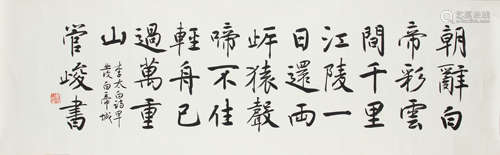 朝辭白
帝彩雲
間千里
江陵一
日還兩
岸猿聲
啼不住
輕舟已
過萬重
山
李太白詩早
發白帝城
管峻書